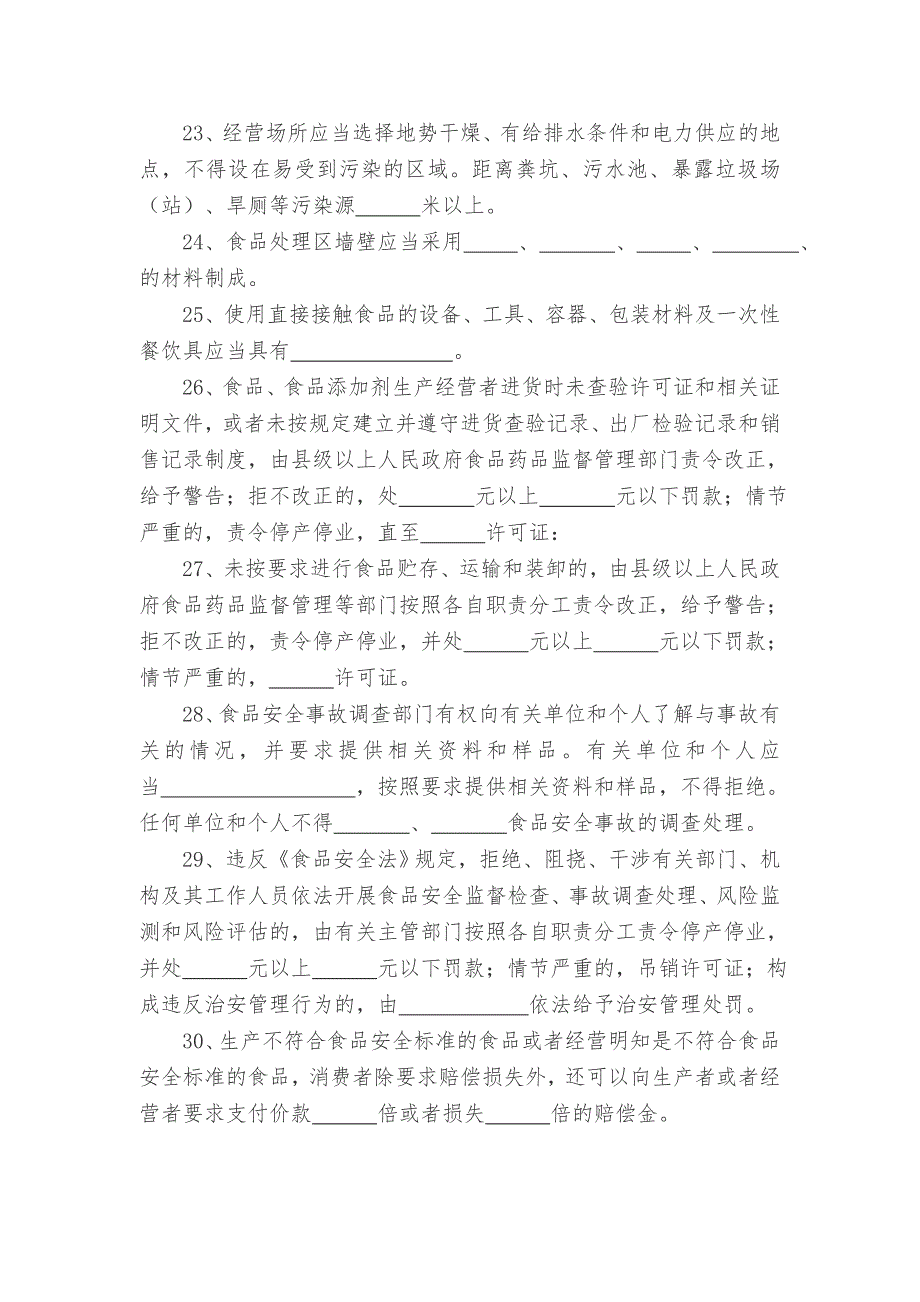 23、经营场所应当选择地势干燥、有给排水条件和电力供应的地
点，不得设在易受到污染的区域。距离粪坑、污水池、暴露垃圾场
（站）、旱厕等污染源______米以上。
24、食品处理区墙壁应当采用_____、_______、_____、________、
的材料制成。
25、使用直接接触食品的设备、工具、容器、包装材料及一次性
餐饮具应当具有_______________。
26、食品、食品添加剂生产经营者进货时未查验许可证和相关证
明文件，或者未按规定建立并遵守进货查验记录、出厂检验记录和销
售记录制度，由县级以上人民政府食品药品监督管理部门责令改正，
给予警告；拒不改正的，处_______元以上_______元以下罚款；情节
严重的，责令停产停业，直至______许可证：
27、未按要求进行食品贮存、运输和装卸的，由县级以上人民政
府食品药品监督管理等部门按照各自职责分工责令改正，给予警告；
拒不改正的，责令停产停业，并处______元以上______元以下罚款；
情节严重的，______许可证。
28、食品安全事故调查部门有权向有关单位和个人了解与事故有
关的情况，并要求提供相关资料和样品。有关单位和个人应
当__________________，按照要求提供相关资料和样品，不得拒绝。
任何单位和个人不得_______、_______食品安全事故的调查处理。
29、违反《食品安全法》规定，拒绝、阻挠、干涉有关部门、机
构及其工作人员依法开展食品安全监督检查、事故调查处理、风险监
测和风险评估的，由有关主管部门按照各自职责分工责令停产停业，
并处______元以上______元以下罚款；情节严重的，吊销许可证；构
成违反治安管理行为的，由____________依法给予治安管理处罚。
30、生产不符合食品安全标准的食品或者经营明知是不符合食品
安全标准的食品，消费者除要求赔偿损失外，还可以向生产者或者经
营者要求支付价款______倍或者损失______倍的赔偿金。